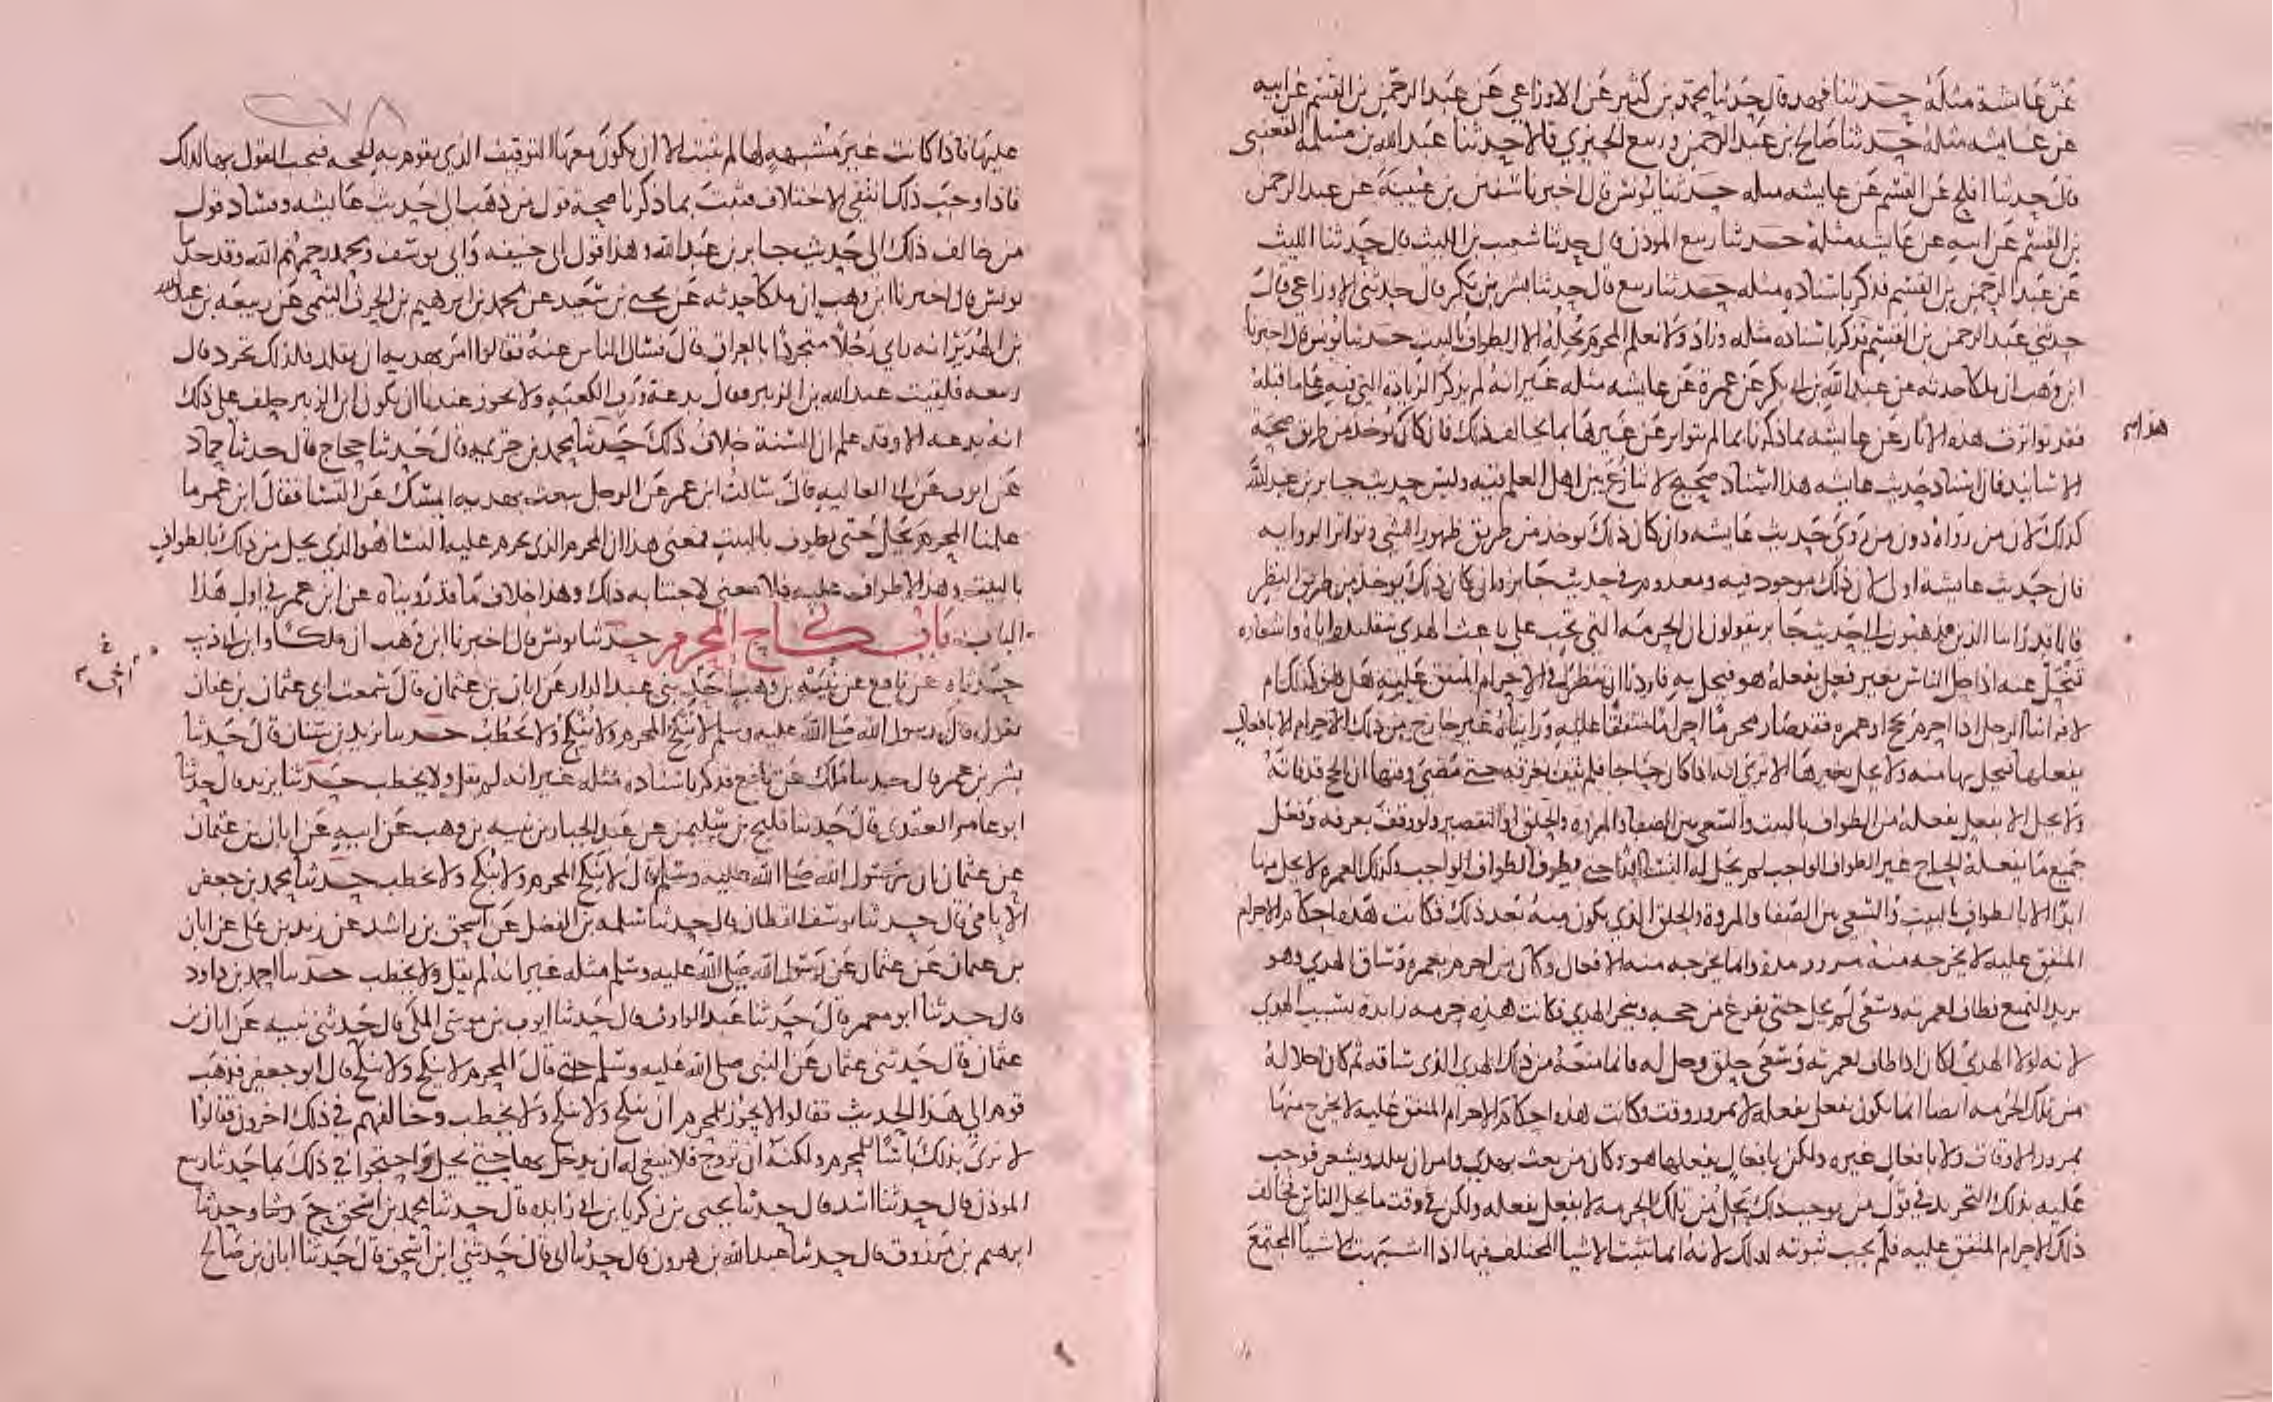 عن عائشة مثله حدثنا فهد قال حدثنا محمد بن كثير عن الاوزاعي عن عبد الرحمن بن القسم عن ابيه
عن عايشه مثله حدثنا صالح بن عبد الرحمن وربيع الجيزي قالا حدثنا عبد الله بن مسلمه القعنبى
قال حدثنا افلح عن القسم عن عايشه مثله حدثنا يونس قال اخبرنا سفين بن عيينة عن عبد الرحمن
بن القسم عن ابيه عن عايشه مثله حدثنا ربيع الموذن قال حدثنا شعيب بن الليث قال حدثنا الليث
عن عبد الرحمن بن القسم فذكر باسناده مثله حدثنا ربيع قال حدثنا بشر بن بكر قال حدثنى الاوزاعي قال
حدثني عبد الرحمن بن القسم فذكر باسناده مثله وزاد ولا نعلم المحرم يحله الا الطواف بالبيت حدثنا يونس قال اخبرنا
ابن وهب ان ملكا حدثه عن عبد الله بن ابى بكر عن عمرة عن عايشه مثله غير انه لم يذكر الزيادة التي فيه على ما قبله
فقد تواترت هذه الاثار عن عايشه بما ذكرنا بما لم يتواتر عن غيرها بما يخالف ذلك فان كان يوخذ من طريق صحة
هذا
الاسانيد فان اسناد حديث عايشه هذا اسناد صحيح لا تنازع بين اهل العلم فيه وليس حديث جابر بن عبد الله
كذلك لان من رواه دون من روى حديث عايشه وان كان ذلك يوخذ من طريق ظهور الشي وتواتر الروايه
فان حديث عايشة اولى لان ذلك موجود فيه ومعدوم في حديث جابر وان كان ذلك يوخذ من طريق النظر
فانا قد راينا الذين يذهبون الى حديث جابر يقولون ان الحرمه التي تجب على باعث الهدي بتقليده اياه واشعاره
فيحل عنه اذا حل الناس بغير فعل يفعله هو فيحل به فاردنا ان ننظر في الاحرام المتفق عليه هل هو كذلك ام
لا فراينا الرجل اذا احرم بحج او عمره فقد صار محرما احراما متفقا عليه وراينا له غير خارج من ذلك الاحرام الا بافعال
يفعلها فيحل بها منه ولا يحل بغيرها الا ترى انه اذا كان حاجا فلم يقف بعرفه حتى مضى وقتها ان الحج قد فاته
ولا يحل الا بفعل يفعله من الطواف بالبيت والسعي بين الصفا والمروه والحلق او التقصير ولو وقف بعرفه وفعل
جميع ما يفعله الحاج غير الطواف الواجب لم يحل له النسا ابدا حتى يطوف الطواف الواجب وكذلك العمره لا يحل منها
ابدا الا بالطواف بالبيت والسعي بين الصفا والمروة والحلق الذي يكون منه بعد ذلك فكانت هذه احكام الاحرام
المتفق عليه لا يخرجه منه مرور مدة وانما يخرجه منه الافعال وكان من احرم بعمره وساق الهدي وهو
يريد التمتع فطاف لعمرته وسعى لم يحل حتى يفرغ من حجه وينحر الهدي فكانت هذه حرمه زايدة بسبب الهدي
لانه لولا الهدي لكان اذا طاف لعمرته وسعى حلق وحل له فانما منعه من ذلك الهدي الذي ساقه ثم كان احلاله
من تلك الحرمه ايضا انما يكون بفعل يفعله لا بمرور وقت وكانت هذه احكام الاحرام المتفق عليه لا يخرج منها
بمرور الاوقات ولا بافعال غيره ولكن بافعال يفعلها هو وكان من بعث بهدي وامر ان يقلد ويشعر فوجب
عليه بذلك التجريد في قول من يوجب ذلك يحل من تلك الحرمه لا بفعل يفعله ولكن في وقت ما يحل الناس فخالف
ذلك الاحرام المتفق عليه فلم يجب ثبوته لذلك لانه انما تثبت الاشيا المختلف فيها اذا اشبهت الاشيا المجتمع
٢٧٨
عليها فاذا كانت غير مشبهه لها لم تثبت الا ان يكون معها التوقيف الذي يقوم به الحجه فيجب القول بها لذلك
فاذا وجب ذلك انتفى الاختلاف فثبت بما ذكرنا صحة قول من ذهب الى حديث عايشه وفساد قول
من خالف ذلك الى حديث جابر بن عبد الله وهذا قول ابي حنيفه وابى يوسف ومحمد رحمهم الله وقد حدثنا
يونس قال اخبرنا ابن وهب ان ملكا حدثه عن يحيى بن سعيد عن محمد بن ابرهيم بن الحرث التيمي عن ربيعه بن عبد الله
بن الهدير انه راى رجلا متجردا بالعراق قال فسال الناس عنه فقالوا امر بهديه ان يقلد فلذلك تجرد قال
ربيعه فلقيت عبد الله بن الزبير فقال بدعة ورب الكعبه ولا يجوز عندنا ان يكون ابن الزبير حلف على ذلك
انه بدعه الا وقد علم ان السنة خلاف ذلك حدثنا محمد بن خزيمه قال حدثنا حجاج قال حدثنا حماد
عن ايوب عن ابى العاليه قال سالت ابن عمر عن الرجل يبعث بهديه ايمسك عن النسا فقال ابن عمر ما
علمنا المحرم يحل حتى يطوف بالبيت فمعنى هذا ان المحرم الذي يحرم عليه النسا هو الذي يحل من ذلك بالطواف
بالبيت وهذا لا طواف عليه فلا معنى لاجتنابه ذلك وهذا خلاف ما قد رويناه عن ابن عمر في اول هذا
الباب باب نكاح المحرم حدثنا يونس قال اخبرنا ابن وهب ان ملكا وابن ابى ذيب
حدثاه عن نافع عن نبيه بن وهب اخى بني عبد الدار عن ابان بن عثمان قال سمعت ابى عثمان بن عفان
يقول قال رسول الله صلى الله عليه وسلم لا ينكح المحرم ولا ينكح ولا يخطب حدثنا يزيد بن سنان قال حدثنا
بشر بن عمر قال حدثنا ملك عن نافع فذكر باسناده مثله غير انه لم يقل ولا يخطب حدثنا يزيد قال حدثنا
ابو عامر العقدي قال حدثنا فليح بن سليمن عن عبد الجبار بن نبيه بن وهب عن ابيه عن ابان بن عثمان
عن عثمان ان رسول الله صلى الله عليه وسلم قال لا ينكح المحرم ولا ينكح ولا يخطب حدثنا محمد بن جعفر
الامامي قال حدثنا يوسف القطان قال حدثنا سلمه بن الفضل عن اسحق بن راشد عن زيد بن على عن ابان
بن عثمان عن عثمان عن رسول الله صلى الله عليه وسلم مثله غير انه لم يقل ولا يخطب حدثنا احمد بن داود
قال حدثنا ابو معمر قال حدثنا عبد الوارث قال حدثنا ايوب بن موسى المكى قال حدثنى نبيه عن ابان بن
عثمان قال حدثنى عثمان عن النبي صلى الله عليه وسلم قال المحرم لا ينكح ولا ينكح قال ابو جعفر فذهب
قوم الى هذا الحديث فقالوا لا يجوز للمحرم ان ينكح ولا ينكح ولا يخطب وخالفهم في ذلك اخرون فقالوا
لا نرى بذلك باسا للمحرم ولكنه ان تزوج فلا ينبغي له ان يدخل بها حتى يحل واحتجوا في ذلك بما حدثنا ربيع
الموذن قال حدثنا اسد قال حدثنا يحيى بن زكريا بن ابى زايده قال حدثنا محمد بن اسحق ح وحدثنا
ابرهيم بن مرزوق قال حدثنا عبد الله بن هرون قال حدثنا ابى قال حدثني ابن اسحق قال حدثنا ابان بن صالح